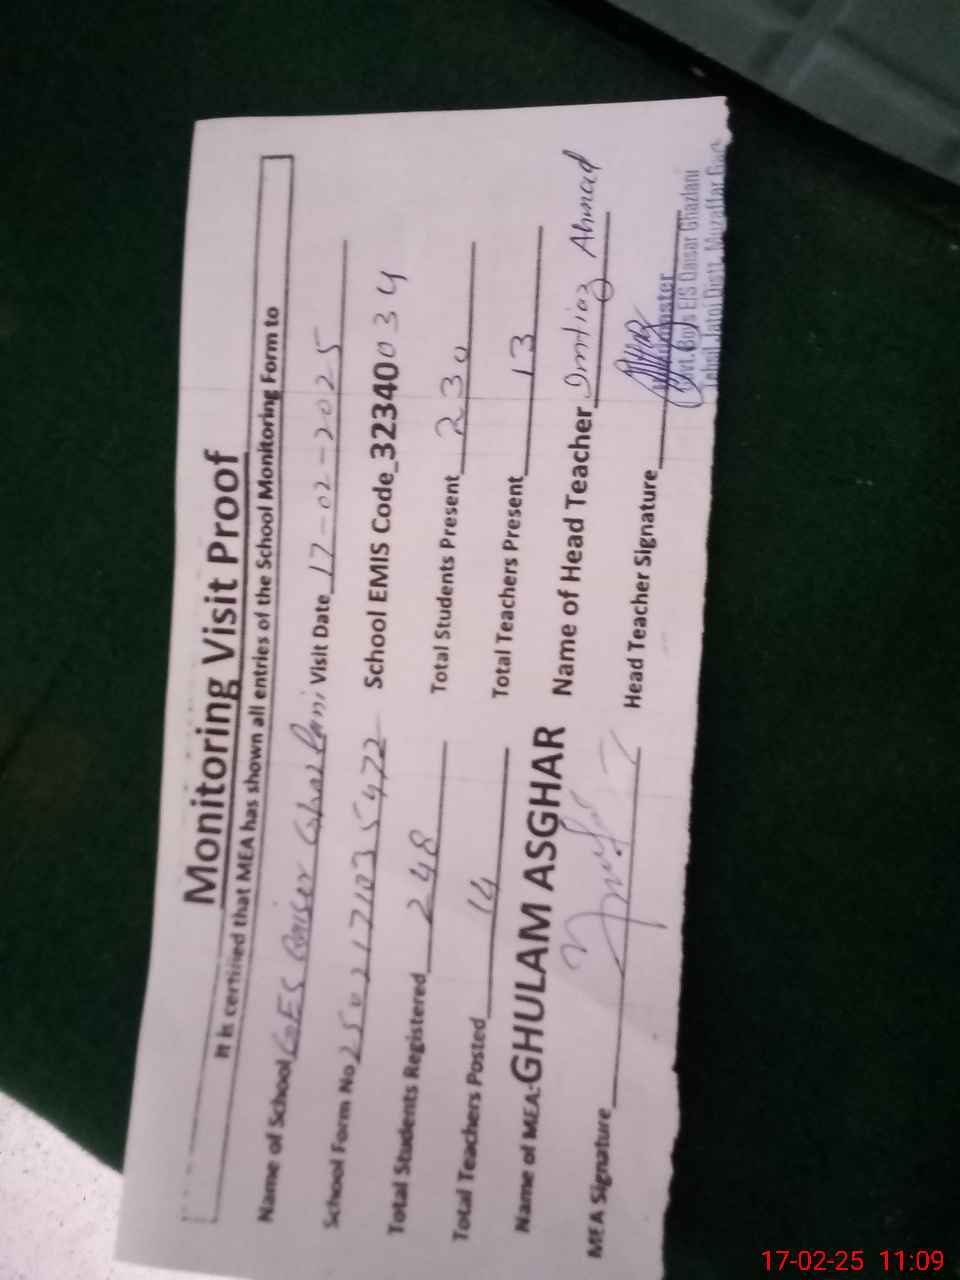 Monitoring Visit Proof
It is certified that MEA has shown all entries of the School Monitoring Form to
Name of School GES Qaiser Ghazlani Visit Date 17-02-2025
School Form No 2502171035472 School EMIS Code 32340034
Total Students Registered 248 Total Students Present 230
Total Teachers Posted 14 Total Teachers Present 13
Name of MEA:-GHULAM ASGHAR Name of Head Teacher Imtiaz Ahmad
MEA Signature Head Teacher Signature
Govt. Boys E/S Qaisar Ghazlani
Tehsil Jatoi Distt. Muzaffar Garh
17-02-25 11:09